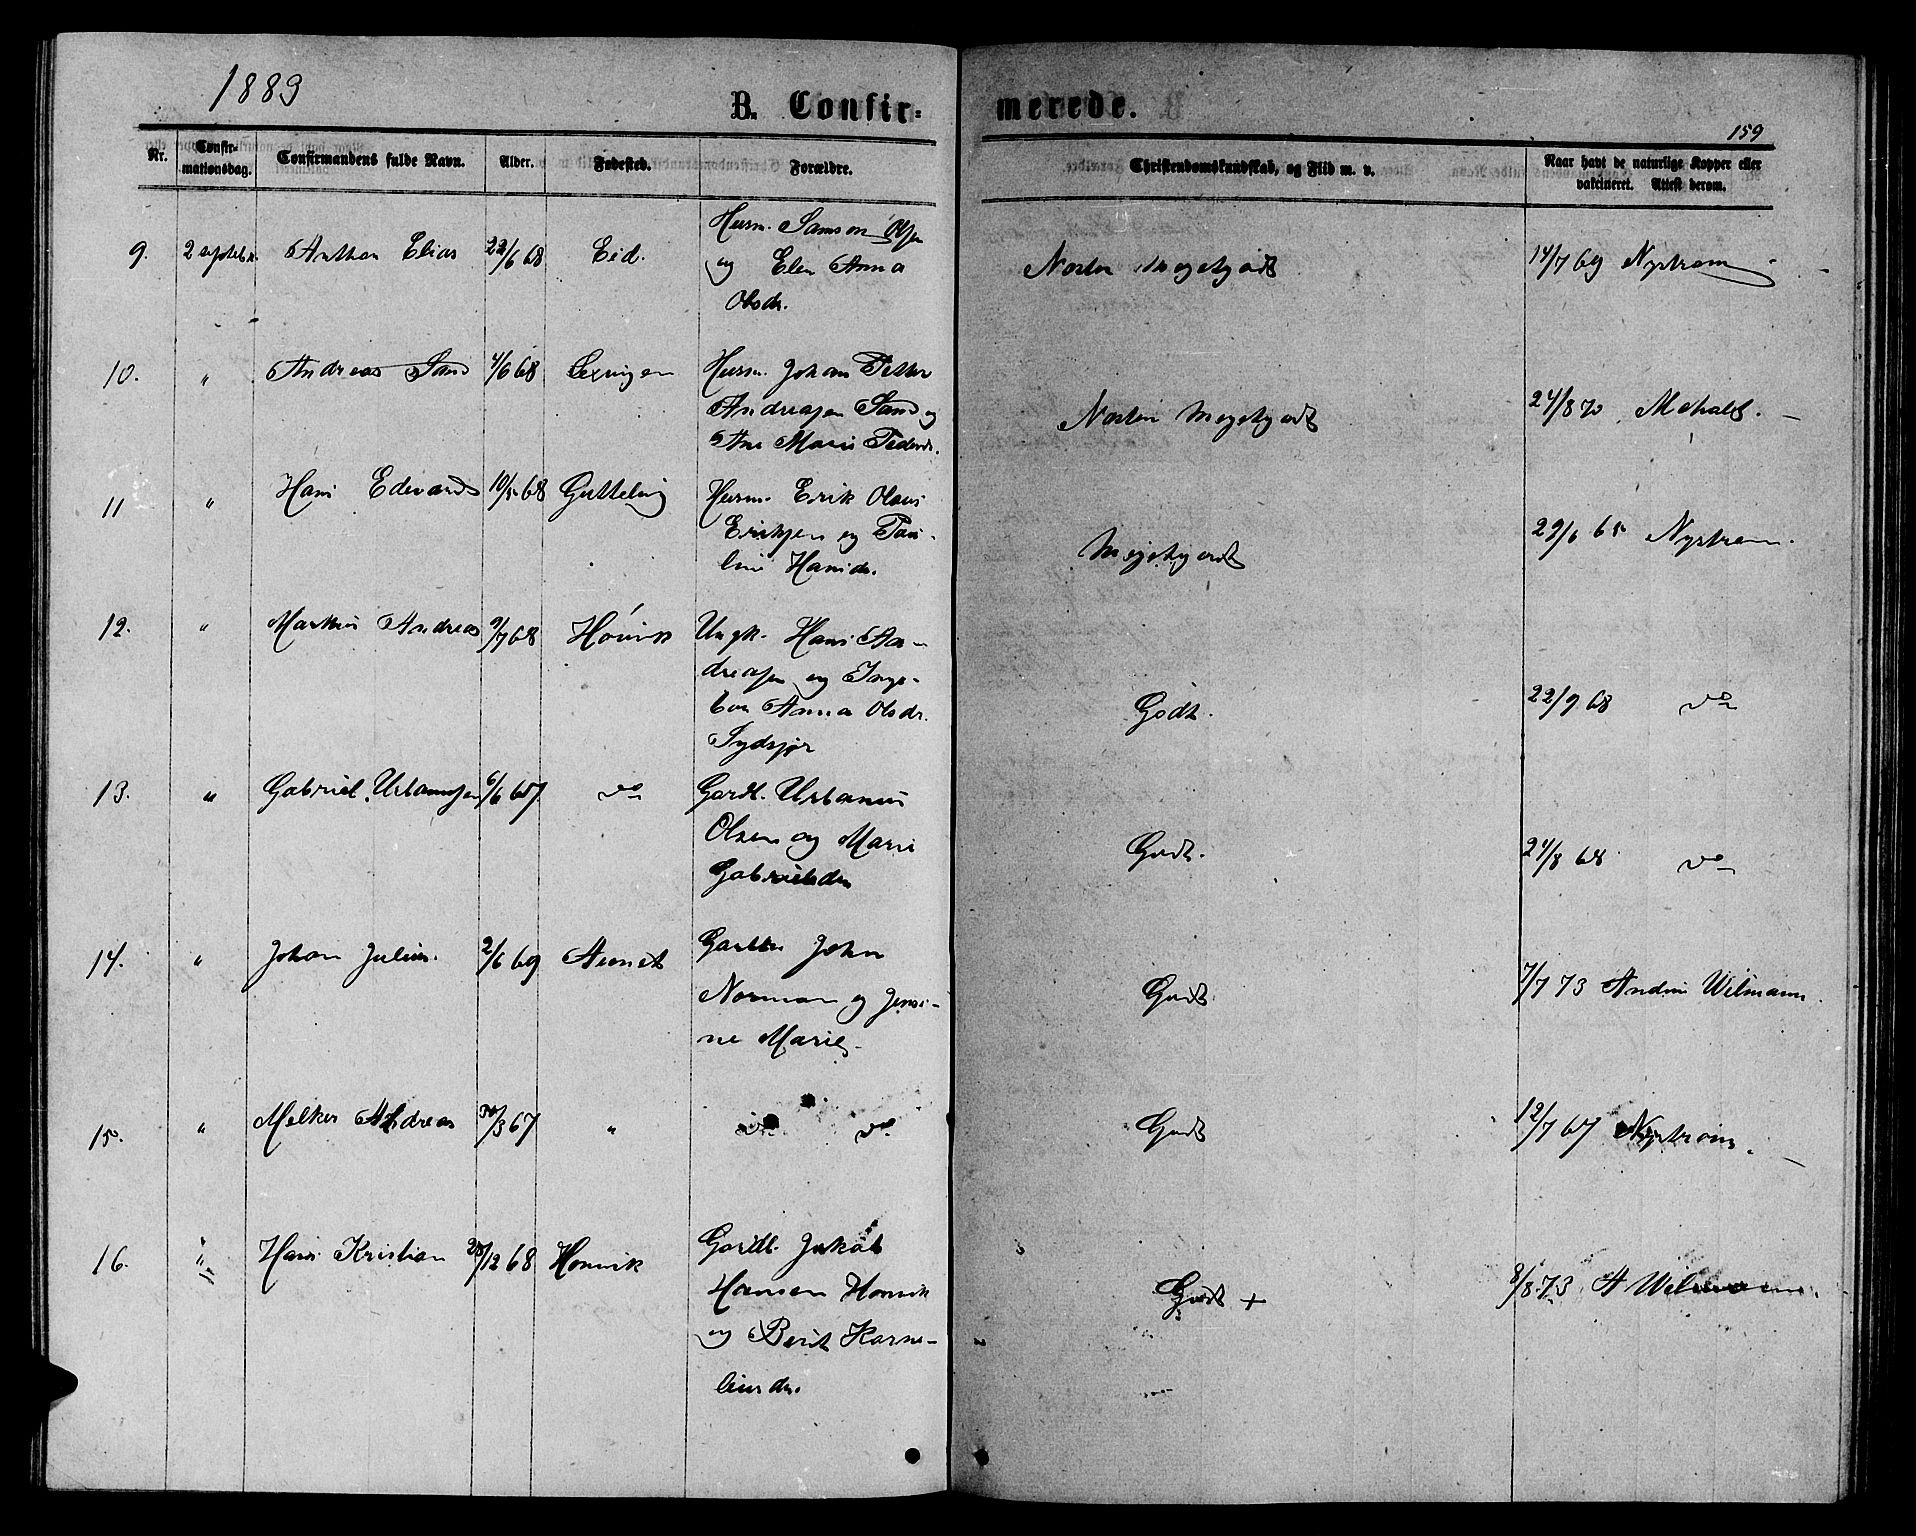 1883
B. Confir- merede.
159
Nr. Confir-mationsdag. Confirmandens fulde Navn. Alder. Fødested. Forældre. Christendomskundskab, og Flid m. v. Naar havt de naturlige Kopper eller vakcineret. Attest derom.
9. 2 septebr. Anthon Elias 22/6 68 Eid. Husm. Samson Olsen
og Elen Anna
Olsdr.
Nesten Megetgodt 14/7 69 Nystrøm
10. " Andreas Sand 4/6 68 Husm. Johan Petter
Andreasen Sand og
Ane Marie Pedersdr.
Nesten Megetgodt 24/8 70
11 " Hans Edvard 10/5 68 Guttelvig Husm. Erik Olaus
Eriksen og Pau-
line Hansdr.
Megetgodt 29/6 65 Nystrøm.
12. " Markus Andreas 9/7 68 Hónvik Ungk. Hans An-
dreasen og Inge-
bor Anna Olsdr.
Sydsjør
Godt. 22/9 68 do
13. " Gabriel Urbanusen 6/6 67 do Gardb. Urbanus
Olsen og Marie
Gabrielsdr
Godt. 24/8 68 do
14. " Johan Julius. 2/6 69 Aunet Gardbr John
Norman og Jensi-
ne Marie
Godt 7/7 73 Andrea Wilmann.
15. " Melker Andreas 30/3 67 " do do
Godt 12/7 67 Nystrøm.
16. " Hans Kristian 28/12 68 Honvik Gardb. Jakob
Hansen Honvik
og Berit Korne-
liusdr.
Godt + 8/8 73 A Wilmann.